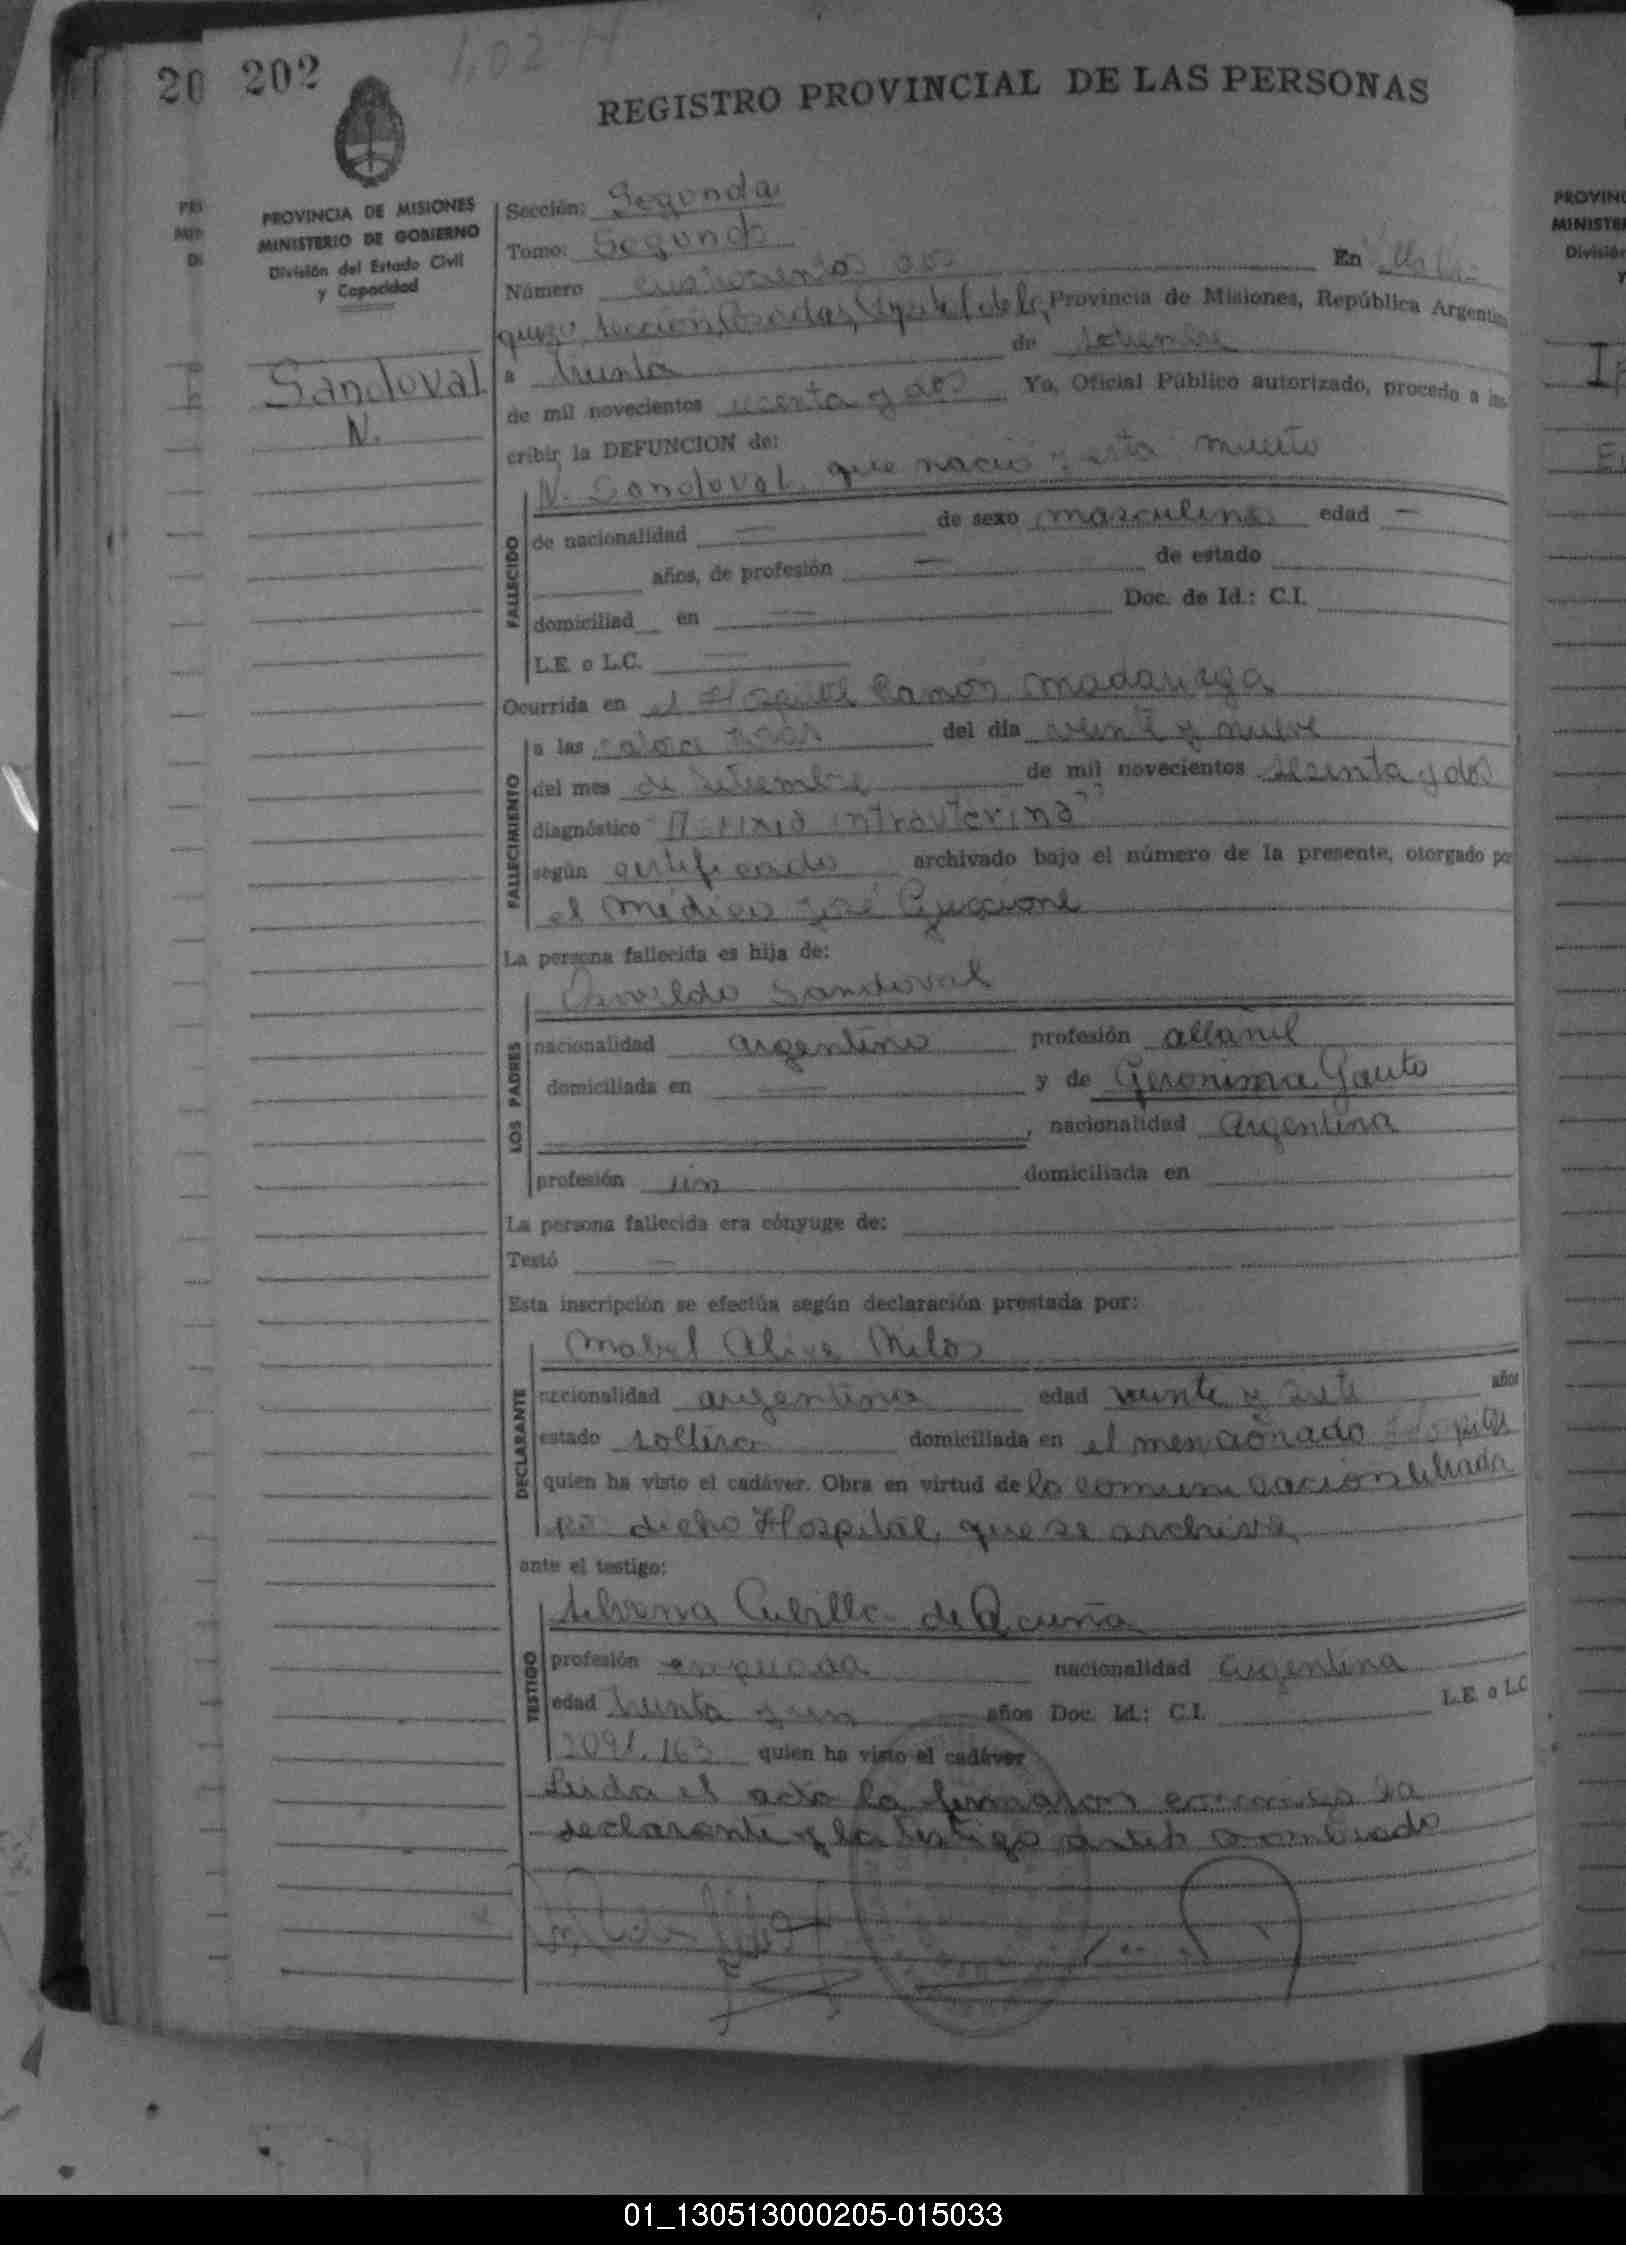 20 202
1.02 H
REGISTRO PROVINCIAL DE LAS PERSONAS
PROVINCIA DE MISIONES
MINISTERIO DE GOBIERNO
División del Estado Civil
y Capacidad
Sandoval
N.
Sección: Segunda
Tomo: Segundo
Número cuatrocientos dos En Villa
sección Posadas, de la Provincia de Misiones, República Argentina
a treinta de setiembre
de mil novecientos sesenta y dos Yo, Oficial Público autorizado, procedo a ins-
cribir la DEFUNCION de:
N. Sandoval que nació y esta muerto
FALLECIDO
de nacionalidad — de sexo masculino edad —
años, de profesión — de estado
domiciliad en — Doc. de Id.: C.I.
L.E. o L.C. —
Ocurrida en el Hospital Ramón Madariaga
FALLECIMIENTO
a las catorce horas del día veinte y nueve
del mes de setiembre de mil novecientos sesenta y dos
diagnóstico intrauterina"
según certificado archivado bajo el número de la presente, otorgado por
el médico José Guccione
La persona fallecida es hija de:
Osvaldo Sandoval
LOS PADRES
nacionalidad argentino profesión albañil
domiciliada en — y de Geronima Gauto
, nacionalidad Argentina
profesión domiciliada en
La persona fallecida era cónyuge de:
Testó —
Esta inscripción se efectúa según declaración prestada por:
Mabel Milos
DECLARANTE
nacionalidad argentina edad veinte y siete años
estado soltera domiciliada en el mencionado Hospital
quien ha visto el cadáver. Obra en virtud de la comunicación librada
por dicho Hospital, que se archiva
ante el testigo:
Silveria Cubilla de Acuña
TESTIGO
profesión empleada nacionalidad argentina
edad treinta y un años Doc. Id.: C.I. L.E. o L.C
2091.163 quien ha visto el cadáver
Leida el acta la firmaron conmigo la
declarante y la testigo
PROVINC
MINISTER
División
01_130513000205-015033